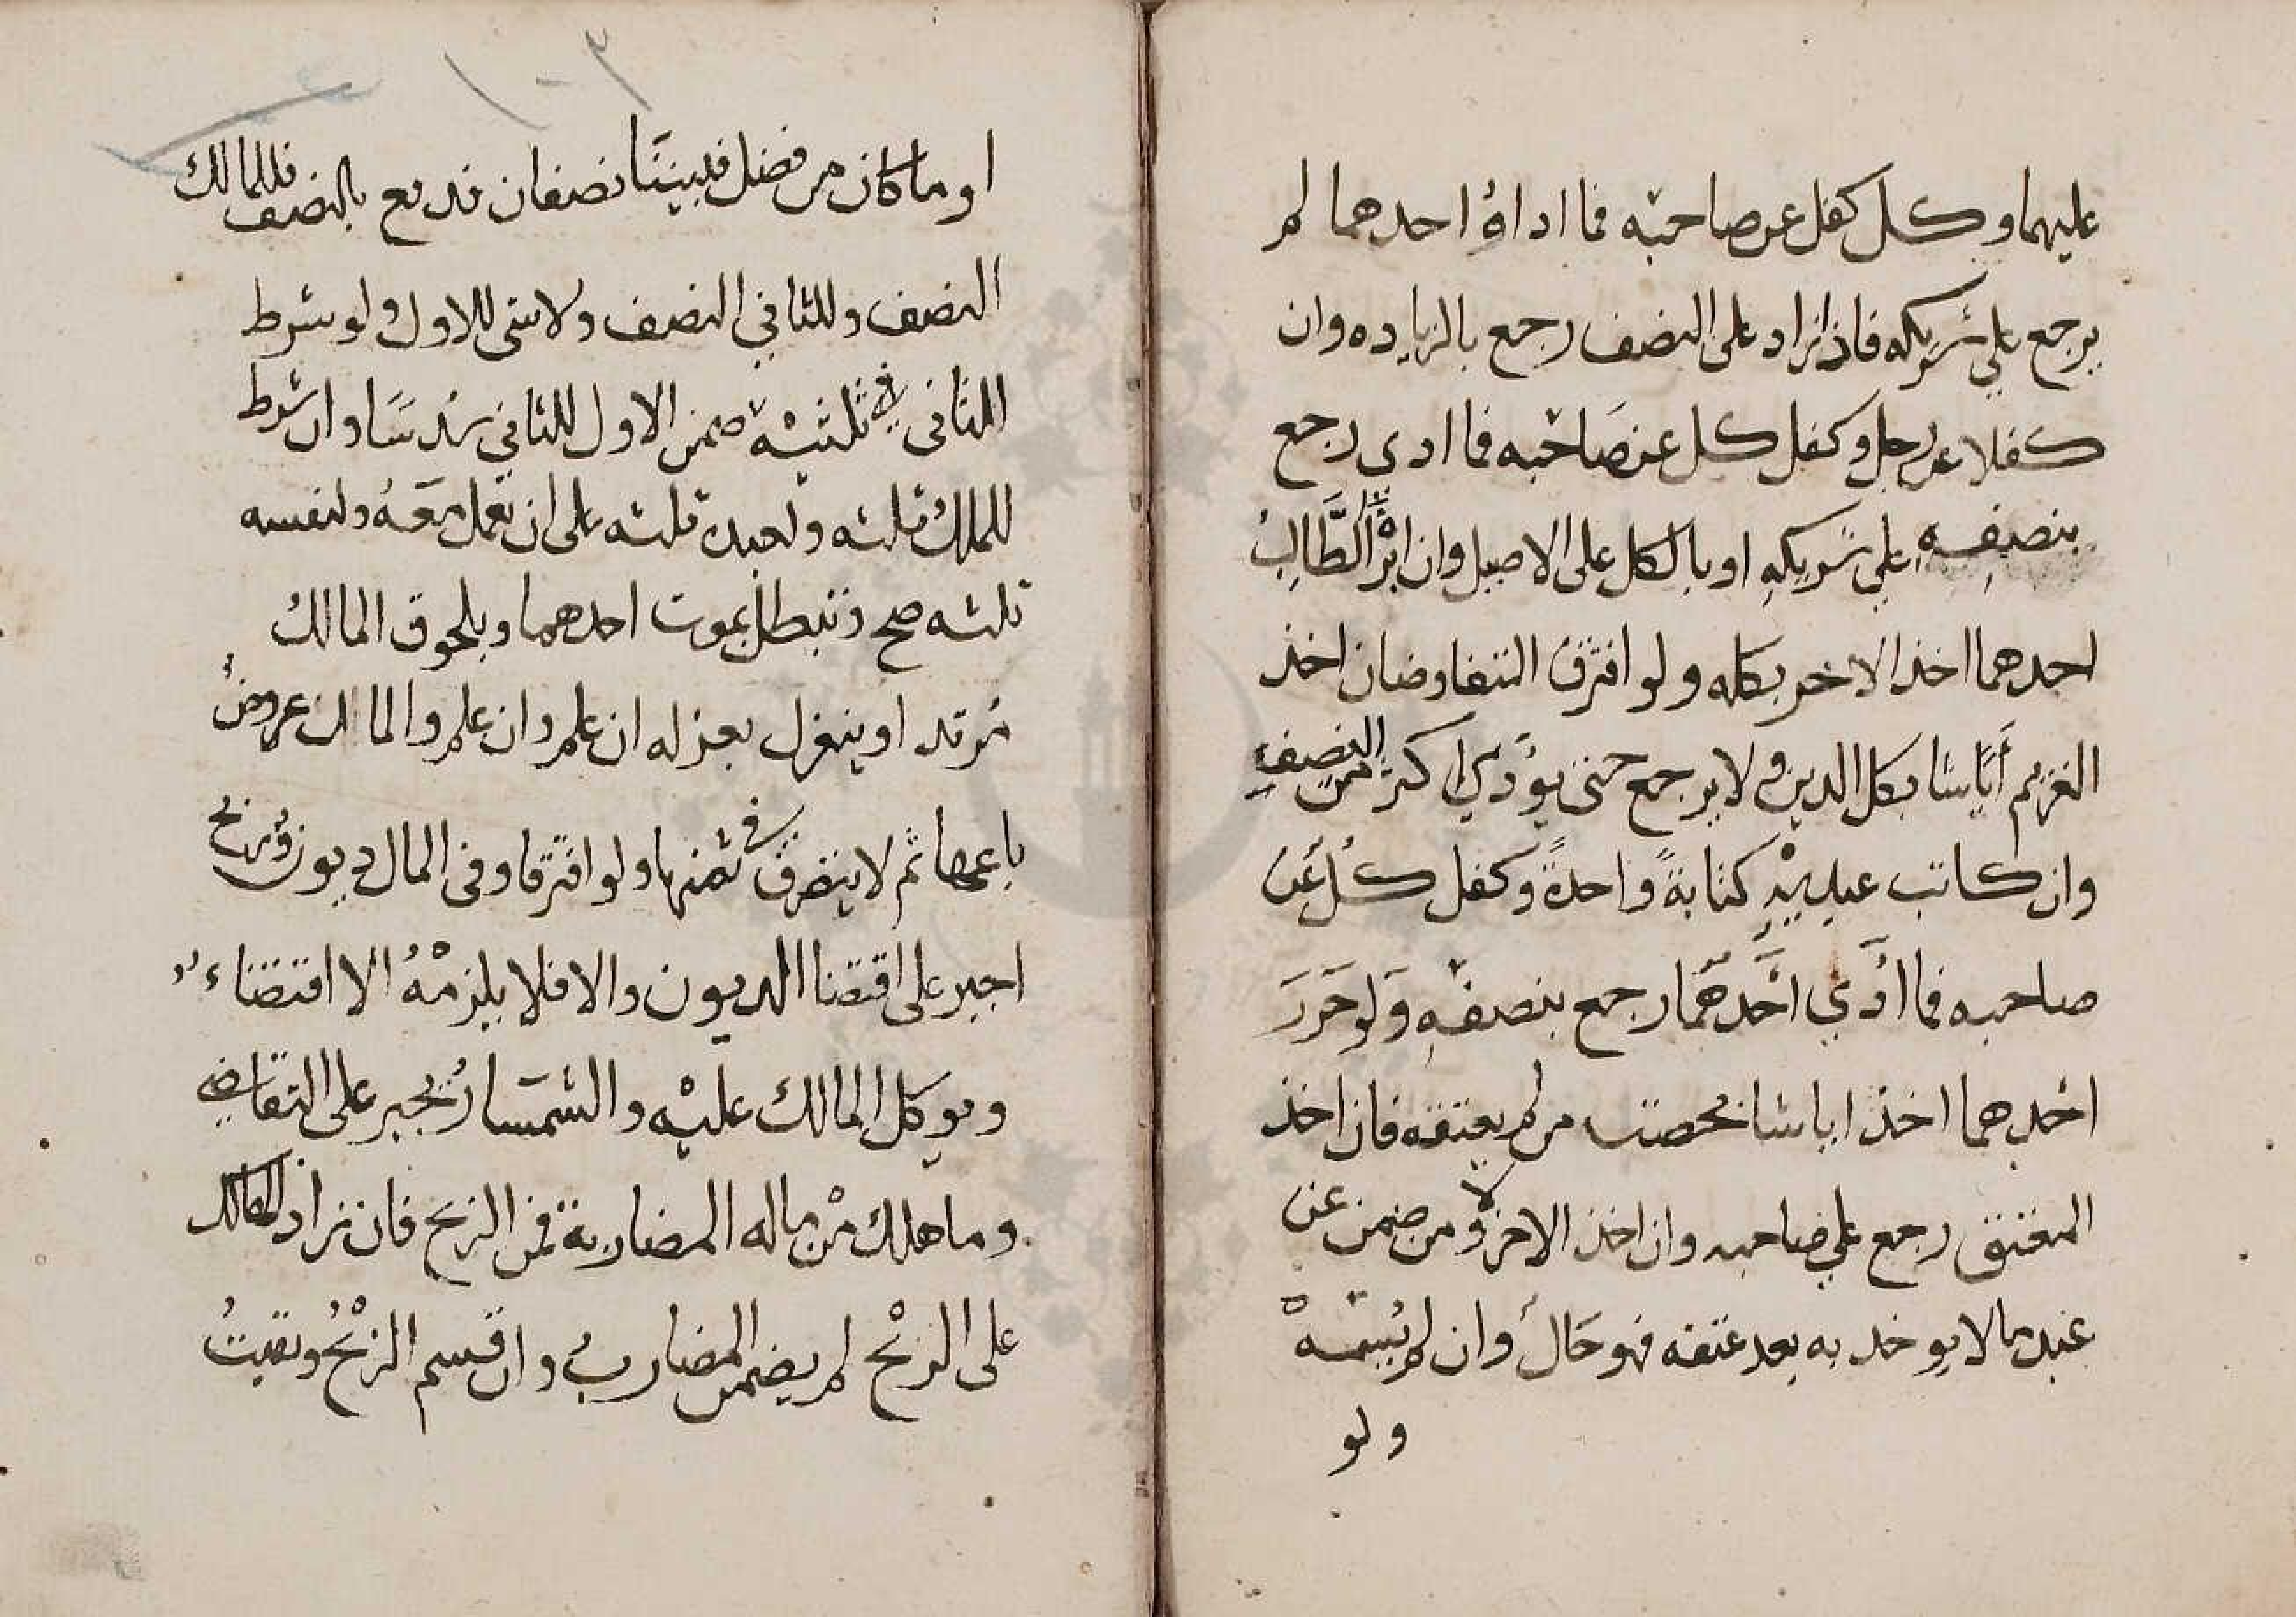 عليهما وكل كفل عن صاحبه فما اداؤ احدهما لم
يرجع علي شريكه فان زاد على النصف رجع بالزياده وان
كفلا عن رجل وكفل كل عن صاحبه فما ادي رجع
بنصفه علي شريكه او بالكل على الاصيل وان ابرأ الطالب
احدهما اخذ الاخر بكله ولو افترق المتفاوضان اخذ
الغريم أيا شا بكل الدين ولا يرجع حتى يؤدي اكثر من النصف
وان كاتب عبديه كتابة واحدة وكفل كل عن
صاحبه فما أدي احدهما رجع بنصفه ولو حرر
احدهما اخذ ايا شا بحصة من لم يعتقه فان اخذ
المعتق رجع علي صاحبه وان اخذ الاخر لا ومن ضمن عن
عبد مالا يوخد به بعد عتقه فهو حال وان لم يسمه
ولو
او ما كان من فضل فبيننا نصفان فدفع بالنصف فللمالك
النصف وللثاني النصف ولا شى للاول ولو شرط
للثانى ثلثيه ضمن الاول للثاني سدسا وان شرط
للملك ثلثه ولعبده ثلثه على ان يعمل معه ولنفسه
ثلثه صح وتبطل بموت احدهما وبلحوق المالك
مرتد او ينعزل بعزله ان علم وان علم والمال عروض
باعها ثم لا يتصرف في ثمنها ولو افترقا وفى المال ديون وربح
اجبر على اقتضا الديون والا فلا يلزمه الا اقتضاء
ويوكل المالك عليه والسمسار يجبر على التقاضي
وما هلك من ماله المضاربة فمن الربح فان زاد الهالك
على الربح لم يضمن المضارب وان قسم الربح وبقيت